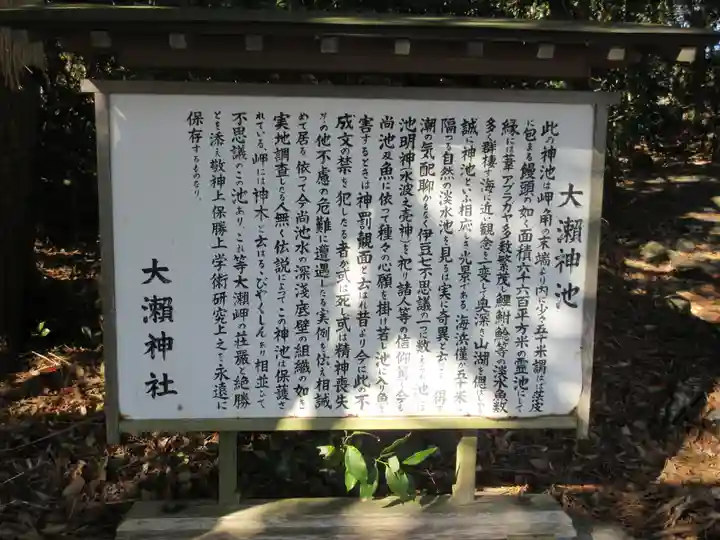 大瀬神池
此の神池は岬の南の末端より内に少さ五十米謂はば茫皮
に包まる饅頭の如く面積六十六百平方米の霊池にして
縁には葦アブラガヤ多数繁茂し鯉鮒鯰等の淡水魚数
多く群棲す海に近い観念を一変して奥深き山湖を偲ばし
誠に神池といふ相応しき光景である、海浜僅か五十米
隔つる自然の淡水池を見るは実に奇異と云
潮の気配聊かもなく伊豆七不思議の一つに数
池明神(水波之売神)を祀り諸人等の信仰篤し今も
尚池及魚に依って種々の心願を掛け若し池に入り魚を
害するときは神罰の観面と云はれ昔より今に此の不
成文の禁を犯したる者が或は死し或は精神喪失
其の他不慮の危難に遭遇したる実例を伝え相誡
めて居る依って今尚池水の深浅底壁の組織の如き
実地調査したる人無く伝説によってこの神池は保護さ
れている、岬には神木と云はるゝびやくしんあり相並びて
不思議のこの池あり、これ等大瀬岬の荘厳と絶勝
とを添え敬神上保勝上学術研究上之を永遠に
保存するものなり。
大瀬神社